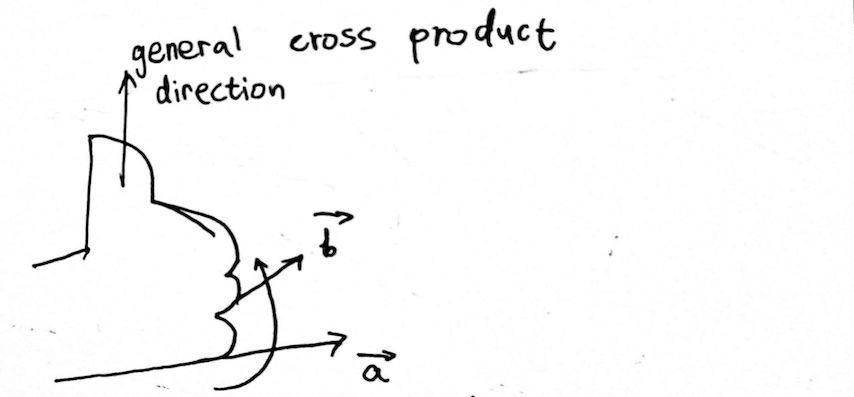 general cross product
direction
b
a